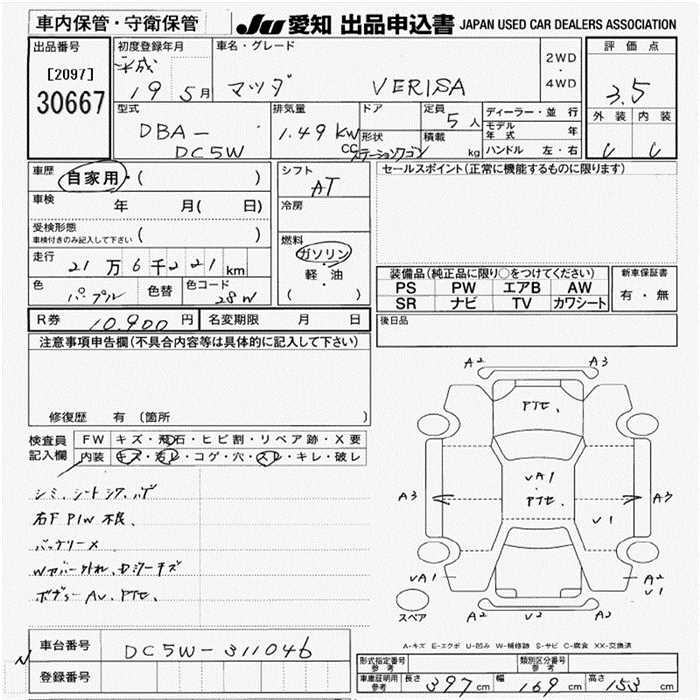 車内保管・守衛保管 JU 愛知 出品申込書 JAPAN USED CAR DEALERS ASSOCIATION
出品番号 初度登録年月 車名・グレード 評価点
[2097] 平成 2WD
30667 19 5月 マツダ VERISA ・ 3.5
4WD
型式 排気量 ドア 定員 5人 ディーラー・並行 外装 内装
DBA- 1.49 KW モデル年式 年
DC5W CC 形状 ステーションワゴン 積載 kg ハンドル 左・右
車歴 自家用・( ) シフト AT セールスポイント(正常に機能するものに限ります)
車検 年 月( 日) 冷房
受検形態 ( )
車検付きのみ記入して下さい
燃料
走行 21万6千221km ガソリン
軽・油
( )
装備品(純正品に限り〇をつけてください) 新車保証書
色 パープル 色替 色コード 28W PS PW エアB AW 有・無
SR ナビ TV カワシート
R券 10,900円 名変期限 月 日 後日品
注意事項申告欄(不具合内容等は具体的に記入して下さい)
修復歴 有(箇所 )
検査員記入欄 FW キズ・飛石・ヒビ割・リペア跡・X要
内装 キズ・汚レ・コゲ・穴・スレ・キレ・破レ
A2 A3
PTE.
A3 VA1 PTE. A3
V1
VA1 A2 V1
A2 V2 A2
スペア
右F P/W 不良
バッテリーメ
ボディー AU、PTE.
A-キズ E-エクボ U-凹み W-補修跡 S-サビ C-腐食 XX-交換済
車台番号 DC5W-311046
登録番号
型式指定番号 参考 類別区分番号 参考
車庫証明用 参考 長さ 397cm 幅 169cm 高さ 153cm